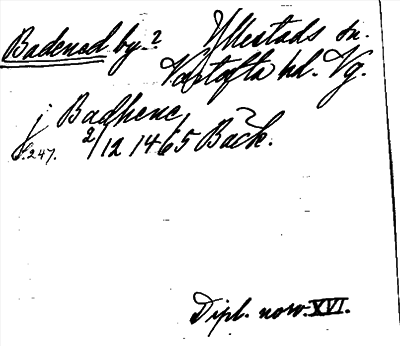 Badened by.? Yllestads sn.
Vartofta hd. Vg.
j Badhene,
s. 247. 2/12 1465 Bäck.
Dipl. norv. XVI.